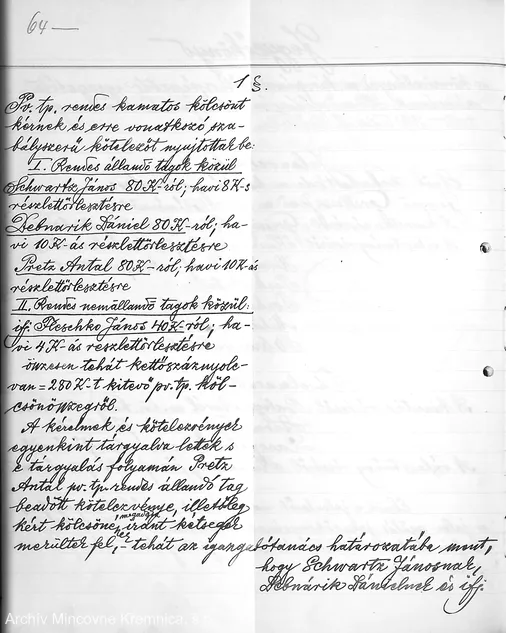 64—
1 §.
Pv. tp. rendes kamatos kölcsönt
kérnek és erre vonatkozó sza-
bályszerű kötelezőt nyujtottak be:
I. Rendes állandó tagok közül
Schwartz János 80 K-ról; havi 8 K-s
részlettörlesztésre
Debnarik Dániel 80 K-ról; ha-
vi 10 K-ás részlettörlesztésre
Pretz Antal 80 K-ról; havi 10 K-ás
részlettörlesztésre
II. Rendes nemállandó tagok közül:
ifj. Pleschko János 40 K-ról; ha-
vi 4 K-ás részlettörlesztésre
összesen tehát kettőszáznyolc-
van = 280 K-t kitevő pv. tp. köl-
csönösszegről.
A kérelmek és kötelezvények
egyenkint tárgyalva lettek s
e tárgyalás folyamán Pretz
Antal pv. tp. rendes állandó tag
beadott kötelezvénye, illetőleg
kért kölcsöne iránt kétségek
merültek fel, tehát az igazgatótanács határozatába ment,
hogy Schwartz Jánosnak,
Debnárik Dánielnek és ifj.
Archív Mincovne Kremnica